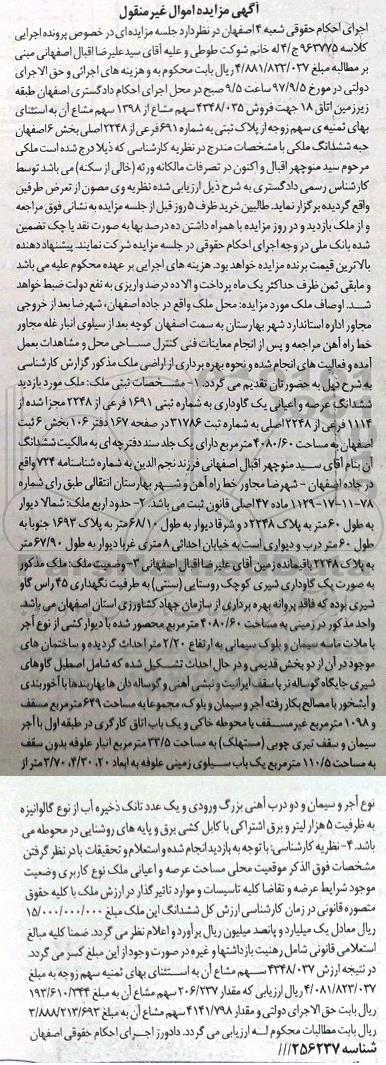 آگهی مزایده اموال غیر منقول
اجرای احکام حقوقی شعبه ۴ اصفهان در نظر دارد جلسه مزایده ای در خصوص پرونده اجرایی
کلاسه ۹۶۳۷۷۵ ج/۴ له خانم شوکت طوطی و علیه آقای سید علیرضا اقبال اصفهانی مبنی
بر مطالبه مبلغ ۴/۸۸۱/۸۲۳/۰۳۷ ریال بابت محکوم به و هزینه های اجرائی و حق الاجرای
دولتی در مورخ ۹۷/۹/۵ ساعت ۹/۵ صبح در محل اجرای احکام دادگستری اصفهان طبقه
زیرزمین اتاق ۱۸ جهت فروش ۴۳۴۸/۰۳۵ سهم مشاع از ۱۳۹۸ سهم مشاع آن به استثنای
بهای ثمنیه ی سهم زوجه از پلاک ثبتی به شماره ۶۹۱ فرعی از ۲۲۴۸ اصلی بخش ۶ اصفهان
جبه ششدانگ ملکی با مشخصات مندرج در نظریه کارشناسی که ذیلا درج شده است ملکی
مرحوم سید منوچهر اقبال و اکنون در تصرفات مالکانه ورثه (خالی از سکنه) می باشد توسط
کارشناس رسمی دادگستری به شرح ذیل ارزیابی شده نظریه وی مصون از تعرض طرفین
واقع گردیده برگزار نماید. طالبین خرید ظرف ۵ روز قبل از جلسه مزایده به نشانی فوق مراجعه
و از ملک بازدید و در روز مزایده با همراه داشتن ده درصد بها به صورت نقد یا چک تضمین
شده بانک ملی در وجه اجرای احکام حقوقی در جلسه مزایده شرکت نمایند. پیشنهاد دهنده
بالاترین قیمت برنده مزایده خواهد بود. هزینه های اجرایی بر عهده محکوم علیه می باشد
و مابقی ثمن ظرف حداکثر یک ماه پرداخت و الا ده درصد واریزی به نفع دولت ضبط خواهد
شد. اوصاف ملک مورد مزایده: محل ملک واقع در جاده اصفهان، شهرضا بعد از خروجی
مجاور اداره استاندارد شهر بهارستان به سمت اصفهان کوچه بعد از سیلوی انبار غله مجاور
خط راه آهن مراجعه و پس از انجام معاینات فنی کنترل مساحی محل و مشاهدات بعمل
آمده و فعالیت های انجام شده و نحوه بهره برداری از اراضی ملک مذکور گزارش کارشناسی
به شرح ذیل به حضورتان تقدیم می گردد. ۱- مشخصات ثبتی ملک: ملک مورد بازدید
ششدانگ عرصه و اعیانی یک گاوداری به شماره ثبتی ۱۶۹۱ فرعی از ۲۲۴۸ مجزا شده از
۱۱۱۴ فرعی از ۲۲۴۸ اصلی به شماره ثبت ۳۱۷۸۶ در صفحه ۱۶۷ دفتر ۱۰۶ بخش ۶ ثبت
اصفهان به مساحت ۴۰۸۰/۶۰ مترمربع دارای یک جلد سند دفترچه ای به مالکیت ششدانگ
آن بنام آقای سید منوچهر اقبال اصفهانی فرزند نجم الدین به شماره شناسنامه ۷۲۴ واقع
در جاده اصفهان - شهرضا مجاور خط راه آهن و شهر بهارستان انتقالی طبق رای شماره
۱۱۲۹-۱۷-۱۱-۷۸ ماده ۴۷ اصلی قانون ثبت می باشد. ۲- حدود اربع ملک: شمالا دیوار
به طول ۶۰ متر به پلاک ۲۲۴۸ د و شرقا دیوار به طول ۶۸/۱۰ متر به پلاک ۱۶۹۳ جنوبا به
طول ۶۰ متر درب و دیواری است به خیابان احداثی ۸ متری غربا دیوار به طول ۶۷/۹۰ متر
به پلاک ۲۲۴۸ باقیمانده زمین آقای علیرضا اقبال اصفهانی ۳- وضعیت ملک: ملک مذکور
به صورت یک گاوداری شیری کوچک روستایی (سنتی) به ظرفیت نگهداری ۴۵ راس گاو
شیری بوده که فاقد پروانه بهره برداری از سازمان جهاد کشاورزی استان اصفهان می باشد.
واحد مذکور در زمینی به مساحت ۴۰۸۰/۶۰ مترمربع محصور شده با دیوار کشی از نوع آجر
با ملات ماسه سیمان و بلوک سیمانی به ارتفاع ۲/۲۰ متر احداث گردیده و ساختمان های
موجود در آن از دو بخش قدیمی و در حال احداث تشکیل شده که شامل اصطبل گاوهای
شیری جایگاه گوساله نر با سقف ایرانیت و نبشی آهنی و گوساله دان ها بهاربندها با آخوربندی
و آبشخور با مصالح بکار رفته آجر و سیمان و بلوک، مجموعا به مساحت ۶۴۹ مترمربع مسقف
و ۱۰۹۸ مترمربع غیر مسقف با محوطه خاکی و یک باب اتاق کارگری در طبقه اول با آجر
سیمان و سقف تیری چوبی (مستهلک) به مساحت ۳۳/۵ مترمربع انبار علوفه بدون سقف
به مساحت ۱۱۰/۵ مترمربع یک باب سیلوی زمینی علوفه به ابعاد ۲۰، ۴/۳۰، ۳/۷۰ متر از
نوع آجر و سیمان و دو درب آهنی بزرگ ورودی و یک عدد تانک ذخیره آب از نوع گالوانیزه
به ظرفیت ۵ هزار لیتر و برق اشتراکی با کابل کشی برق و پایه های روشنایی در محوطه می
باشد. ۴- نظریه کارشناسی: با توجه به بازدید انجام شده و استعلام و تحقیقات با در نظر گرفتن
مشخصات فوق الذکر موقعیت محلی مساحت عرصه و اعیانی ملک نوع کاربری وضعیت
موجود شرایط عرضه و تقاضا کلیه تاسیسات و موارد تاثیر گذار در ارزش ملک با کلیه حقوق
متصوره قانونی در زمان کارشناسی ارزش کل ششدانگ این ملک مبلغ ۱۵/۰۰۰/۰۰۰/۰۰۰
ریال معادل یک میلیارد و پانصد میلیون ریال برآورد و اعلام نظر می گردد. ضمنا کلیه مبالغ
استعلامی قانونی شامل رهنیت بازداشتها و غیره در صورت وجود از این مبلغ کسر می گردد.
در نتیجه ارزش ۴۳۴۸/۰۳۷ سهم مشاع آن به استثنای بهای ثمنیه سهم زوجه به مبلغ
۴/۰۸۱/۸۲۳/۰۳۷ ریال ارزیابی که مقدار ۲۰۶/۲۳۷ سهم مشاع آن به مبلغ ۱۹۳/۶۱۰/۳۴۴
ریال بابت حق الاجرای دولتی و مقدار ۴۱۴۱/۷۹۸ سهم مشاع آن به مبلغ ۳/۸۸۸/۲۱۳/۶۹۳
ریال بابت مطالبات محکوم له ارزیابی می گردد. دادورز اجرای احکام حقوقی اصفهان
شناسه ۲۵۶۲۳۷///